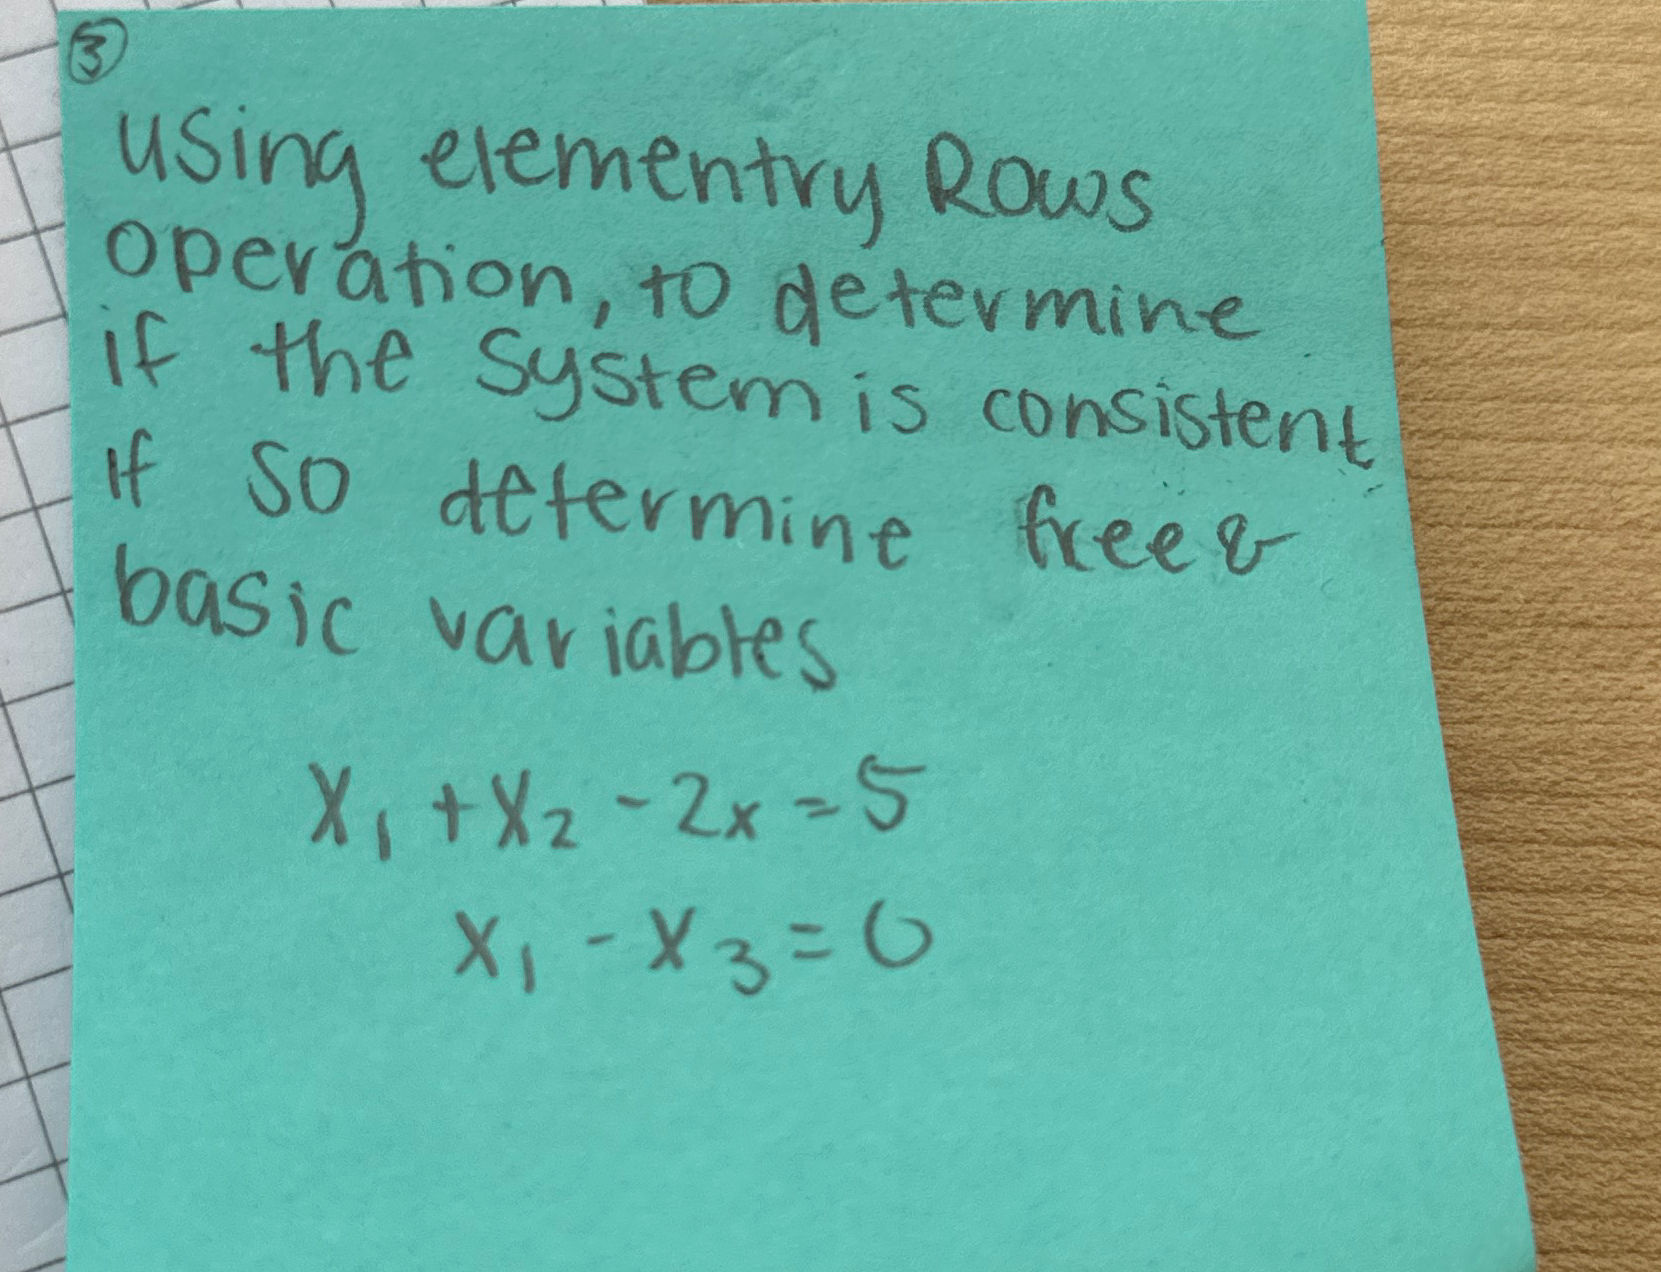 ③
using elementry Rows
operation, to determine
if the system is consistent
If so determine free &
basic variables
X₁ + X₂ - 2x = 5
X₁ - X₃ = 0